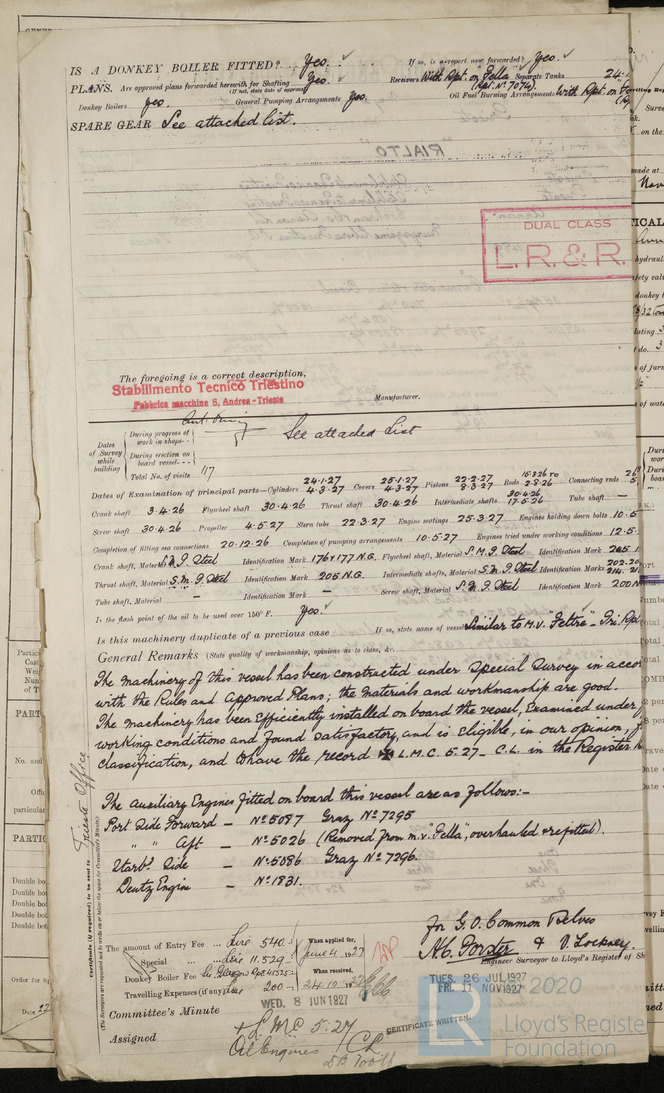 IS A DONKEY BOILER FITTED? Yes. If so, is a report now forwarded? Yes.
PLANS. Are approved plans forwarded herewith for Shafting Yes. Receivers With Rpt. on "Fella" Separate Tanks 24.
(If not, state date of approval) (Rpt. Nº 7074).
Donkey Boilers yes. General Pumping Arrangements Yes. Oil Fuel Burning Arrangements With Rpt. on
SPARE GEAR See attached list.
RIALTO
DUAL CLASS
L.R. & R.
The foregoing is a correct description,
Stabilimento Tecnico Triestino
Fabbrica macchine S. Andrea - Trieste
Manufacturer.
Dates of Survey while building
During progress of work in shops - -
During erection on board vessel - - -
Total No. of visits 117
See attached List
Dates of Examination of principal parts—Cylinders 24.1.27 4.3.27 Covers 25.1.27 4.3.27 Pistons 22.2.27 8.3.27 Rods 15.3.26 to 2.8.26 Connecting rods
Crank shaft 3.4.26 Flywheel shaft 30.4.26 Thrust shaft 30.4.26 Intermediate shafts 30.4.26 17.5.26 Tube shaft —
Screw shaft 30.4.26 Propeller 4.5.27 Stern tube 22.3.27 Engine seatings 25.3.27 Engines holding down bolts 10.5
Completion of fitting sea connections 20.12.26 Completion of pumping arrangements 10.5.27 Engines tried under working conditions 12.5.
Crank shaft, Material S.M.I. Steel Identification Mark 176 & 177 N.G. Flywheel shaft, Material S.M.I. Steel Identification Mark 205
Thrust shaft, Material S.M.I. Steel Identification Mark 205 N.G. Intermediate shafts, Material S.M.I. Steel Identification Marks 202.20
Tube shaft, Material — Identification Mark — Screw shaft, Material S.M.I. Steel Identification Mark 200
Is the flash point of the oil to be used over 150° F. Yes.
Is this machinery duplicate of a previous case If so, state name of vessel Similar to M.V. "Feltre" - Tri. Rpt
General Remarks (State quality of workmanship, opinions as to class, &c.
The machinery of this vessel has been constructed under Special Survey in accor
with the Rules and Approved Plans; the materials and workmanship are good.
The machinery has been efficiently installed on board the vessel, examined under
working conditions and found satisfactory, and is eligible, in our opinion, f
classification, and to have the record L.M.C. 5.27 - C.L. in the Register
The auxiliary Engines fitted on board this vessel are as follows:-
Port Side Forward — Nº 5087 Graz Nº 7295
" " Aft — Nº 5026 (Removed from m.v. "Fella", overhauled & refitted).
Starbd Side — Nº 5086 Graz Nº 7296.
Deutz Engine — Nº 1831.
for G.O. Common & Selves
& V. Lockney.
Engineer Surveyor to Lloyd's Register of Sh
The amount of Entry Fee ... Lire 540. When applied for,
Special ... Lire 11.529. June 4 1927
Donkey Boiler Fee When received,
Travelling Expenses (if any) Lire 200 24.10.1927
WED. 8 JUN 1927
TUES. 26 JUL 1927
FRI. 11 NOV 1927
2020
Committee's Minute
Assigned + L.M.C 5.27
Oil Engines / CL
CERTIFICATE WRITTEN.
Certificate (if required) to be sent to Trieste Office
(The Surveyors are requested not to write on or below the space for Committee's Minute.)
LR
Lloyd's Registe
Foundation